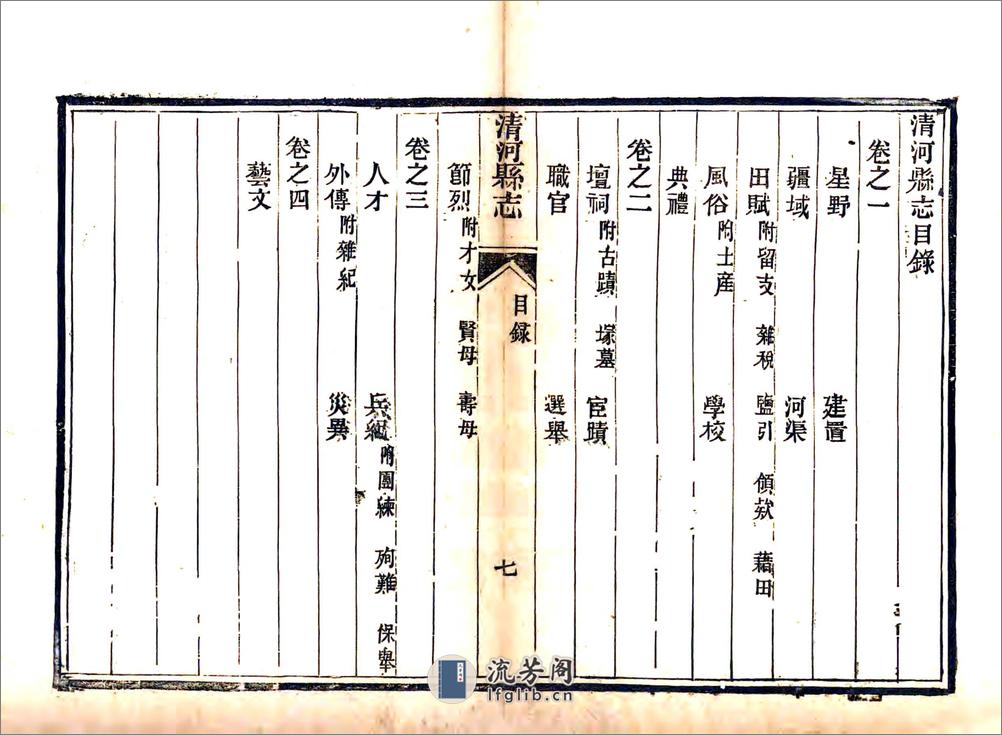 清河縣志目錄
卷之一
星野 建置
疆域 河渠
田賦 附留支 雜稅 鹽引 領欵 藉田
風俗 附土産 學校
典禮
卷之二
壇祠 附古蹟 塚墓 宦蹟
職官 選舉
清河縣志 目錄 七
節烈 附才女 賢母 壽母
卷之三
人才 兵紀 附團練 殉難 保舉
外傳 附雜紀 災異
卷之四
藝文
流芳阁
lfglib.cn